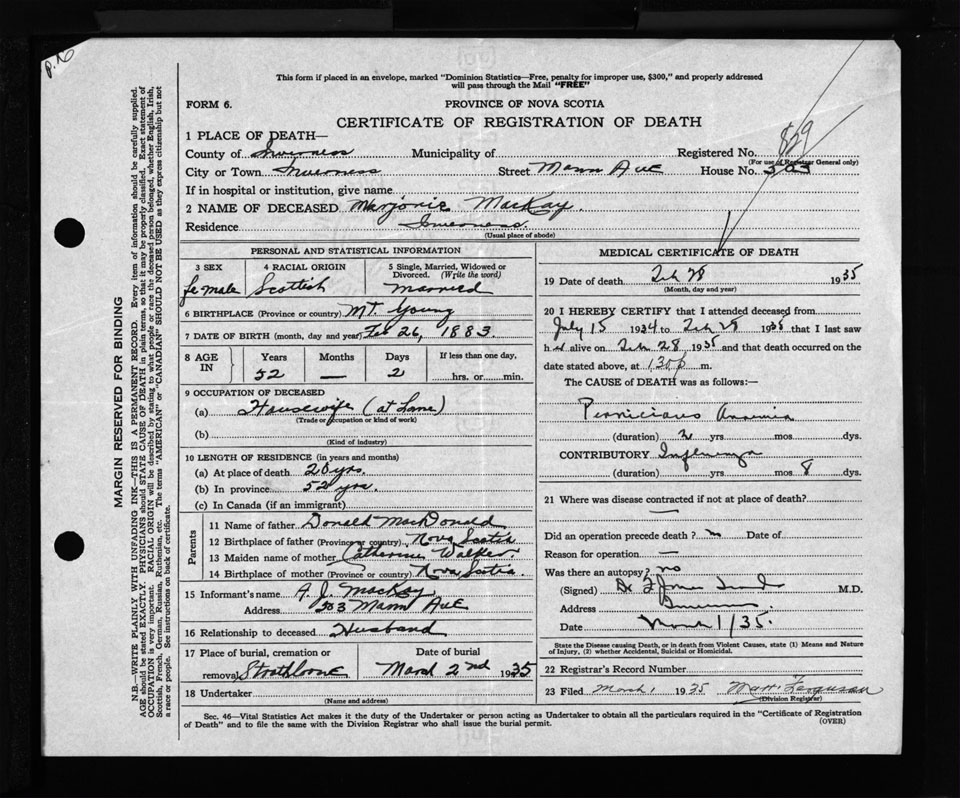 P.N
This form if placed in an envelope, marked "Dominion Statistics—Free, penalty for improper use, $300," and properly addressed
will pass through the Mail "FREE"
FORM 6.
PROVINCE OF NOVA SCOTIA
CERTIFICATE OF REGISTRATION OF DEATH
1 PLACE OF DEATH—
829
County of Inverness Municipality of Registered No.
(For use of Registrar General only)
City or Town Inverness Street Mann Ave House No. 303
If in hospital or institution, give name
2 NAME OF DECEASED Marjorie MacKay
Residence Inverness
(Usual place of abode)
PERSONAL AND STATISTICAL INFORMATION
3 SEX female
4 RACIAL ORIGIN Scottish
5 Single, Married, Widowed or
Divorced. (Write the word)
Married
6 BIRTHPLACE (Province or country) Mt. Young
7 DATE OF BIRTH (month, day and year) Feb 26, 1883.
8 AGE IN Years 52 Months — Days 2 If less than one day, hrs. or min.
9 OCCUPATION OF DECEASED
(a) Housewife (at home)
(Trade or occupation or kind of work)
(b)
(Kind of industry)
10 LENGTH OF RESIDENCE (in years and months)
(a) At place of death 20 yrs.
(b) In province 52 yrs.
(c) In Canada (if an immigrant)
Parents
11 Name of father Donald MacDonald
12 Birthplace of father (Province or country) Nova Scotia
13 Maiden name of mother Catherine Walker
14 Birthplace of mother (Province or country) Nova Scotia
15 Informant's name A. J. MacKay
Address 303 Mann Ave
16 Relationship to deceased Husband
17 Place of burial, cremation or
removal Strathlorne
Date of burial
March 2nd 1935
18 Undertaker
(Name and address)
MEDICAL CERTIFICATE OF DEATH
19 Date of death Feb 28 1935
(Month, day and year)
20 I HEREBY CERTIFY that I attended deceased from
July 15 1934 to Feb 28 1935 that I last saw
h alive on Feb 28 1935 and that death occurred on the
date stated above, at m.
The CAUSE of DEATH was as follows:—
Pernicious Anemia
(duration) 2 yrs. mos. dys.
CONTRIBUTORY Influenza
(duration) yrs. mos 8 dys.
21 Where was disease contracted if not at place of death?
—
Did an operation precede death? no Date of
Reason for operation —
Was there an autopsy? no
(Signed) Dr M.D.
Address Inverness
Date March 1/35.
State the Disease causing Death, or in death from Violent Causes, state (1) Means and Nature
of Injury, (2) whether Accidental, Suicidal or Homicidal.
22 Registrar's Record Number
23 Filed March 1 1935 Ferguson
(Division Registrar)
Sec. 46—Vital Statistics Act makes it the duty of the Undertaker or person acting as Undertaker to obtain all the particulars required in the "Certificate of Registration
of Death" and to file the same with the Division Registrar who shall issue the burial permit.
(OVER)
MARGIN RESERVED FOR BINDING
N.B.—WRITE PLAINLY WITH UNFADING INK—THIS IS A PERMANENT RECORD. Every item of information should be carefully supplied.
AGE should be stated EXACTLY. PHYSICIANS should STATE CAUSE OF DEATH in plain terms, so that it may be properly classified. Exact statement of
OCCUPATION is very important. RACIAL ORIGIN will be described by stating to what people or race the deceased person belonged, whether English, Irish,
Scottish, French, German, Russian, Ruthenian, etc. The terms "AMERICAN" or "CANADIAN" SHOULD NOT BE USED as they express citizenship but not
a race or people. See instructions on back of certificate.